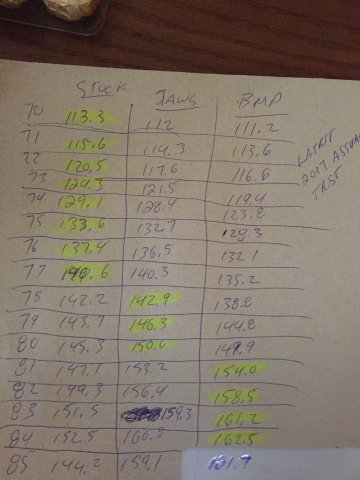 Stock Jaws BMP
70 113.3 112 111.2
71 115.6 114.3 113.6
72 120.5 117.6 116.6
73 124.3 121.5 119.4
74 129.1 128.4 123.8
75 133.6 132.7 129.3
76 137.4 136.5 132.1
77 140.6 140.3 135.2
78 142.2 142.9 138.8
79 143.7 146.3 144.8
80 145.3 150.0 149.9
81 147.1 153.2 154.0
82 149.3 156.4 158.5
83 151.5 159.3 161.2
84 152.5 160.8 162.5
85 144.2 159.1 161.7
2017
TEST